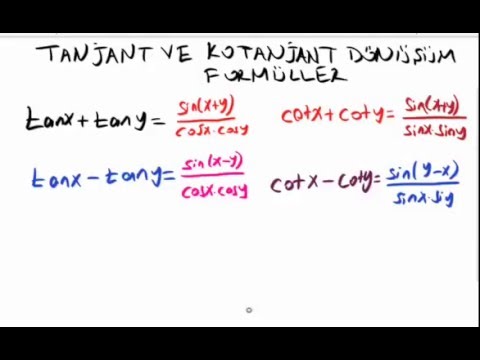 TANJANT VE KOTANJANT DÖNÜŞÜM
FORMÜLLER
tanx + tany = sin(x+y)/cosx.cosy
cotx + coty = sin(x+y)/sinx.siny
tanx - tany = sin(x-y)/cosx.cosy
cotx - coty = sin(y-x)/sinx.siy